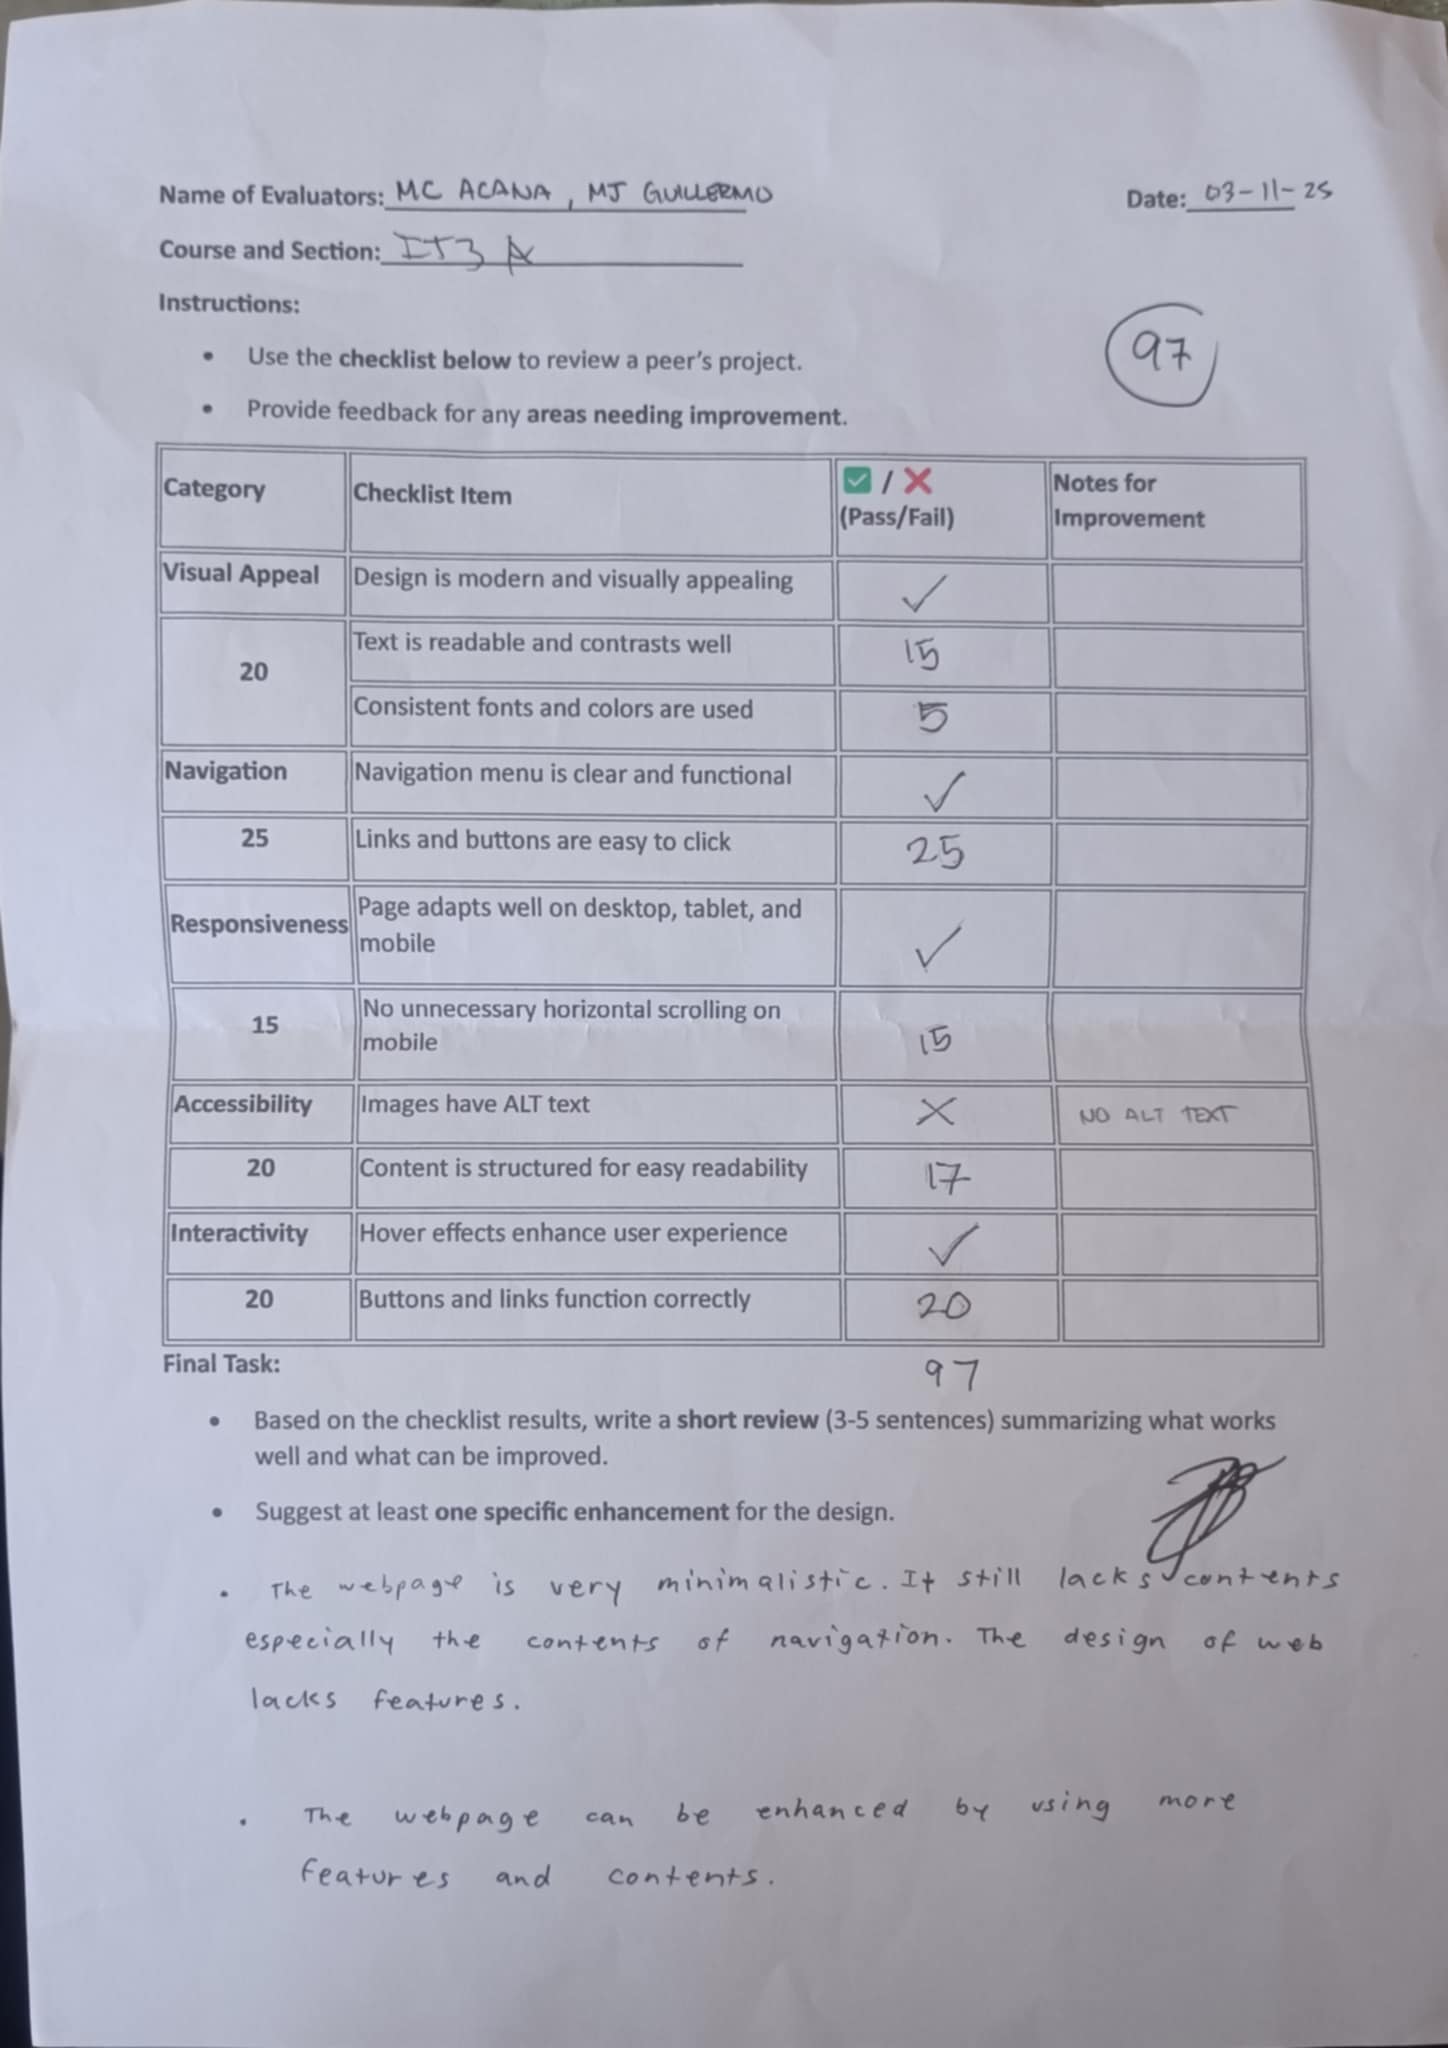 Name of Evaluators: MC ACANA, MJ GUILLERMO
Date: 03-11-25
Course and Section: IT3 A
Instructions:
97
• Use the checklist below to review a peer's project.
• Provide feedback for any areas needing improvement.
Category Checklist Item ✅ / ❌ (Pass/Fail) Notes for Improvement
Visual Appeal Design is modern and visually appealing ✓
20 Text is readable and contrasts well 15
Consistent fonts and colors are used 5
Navigation Navigation menu is clear and functional ✓
25 Links and buttons are easy to click 25
Responsiveness Page adapts well on desktop, tablet, and mobile ✓
15 No unnecessary horizontal scrolling on mobile 15
Accessibility Images have ALT text ✗ NO ALT TEXT
20 Content is structured for easy readability 17
Interactivity Hover effects enhance user experience ✓
20 Buttons and links function correctly 20
Final Task: 97
• Based on the checklist results, write a short review (3-5 sentences) summarizing what works
well and what can be improved.
• Suggest at least one specific enhancement for the design.
• The webpage is very minimalistic. It still lacks contents
especially the contents of navigation. The design of web
lacks features.
• The webpage can be enhanced by using more
features and contents.